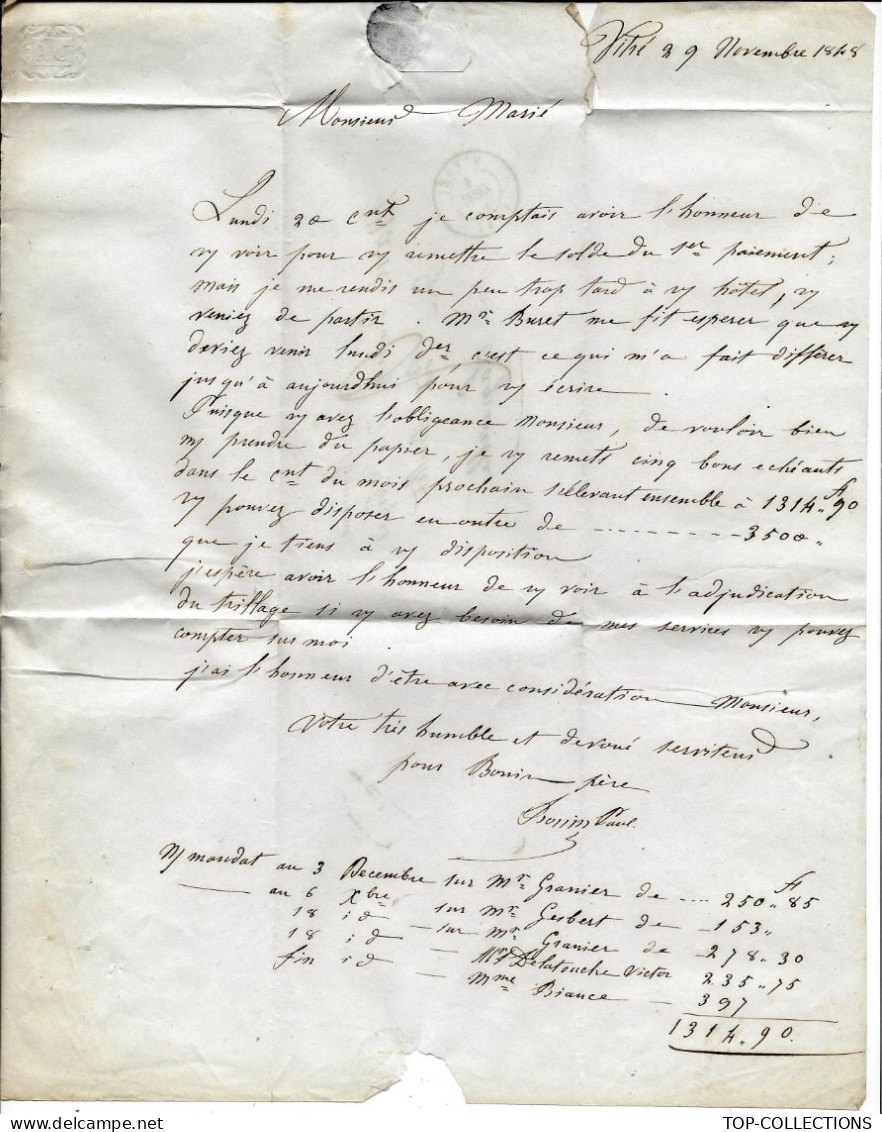 Vitré 29 Novembre 1848
Monsieur Marié
Lundi 20 Cnt je comptais avoir l'honneur de
vs voir pour vs remettre le solde du 1er paiement;
mais je me rendis un peu trop tard à vs hôtel, vs
veniez de partir. Mr Buret me fit espérer que vs
deviez venir lundi der c'est ce qui m'a fait différer
jusqu'à aujourdhui pour vs écrire.
Puisque vs avez l'obligeance Monsieur, de vouloir bien
my prendre du papier, je vs remets cinq bons echéants
dans le cnt du mois prochain s'ellevant ensemble à 1314 „ 90
Vs pouvez disposer en outre de --------- 3500 „
que je tiens à vs disposition
j'espère avoir l'honneur de vs voir à l'adjudication
du trillage si vs avez besoin de mes services vs pouvez
compter sur moi.
j'ai l'honneur d'être avec considération Monsieur,
Votre très humble et dévoué serviteur
pour Bonin père
Bonin Paul.
N/ mandat au 3 Decembre sur Mr Granier de .... 250 „ 85
au 6 Xbre sur Mr Gesbert de — 153 „
18 id — sur Mr Granier de — 278 „ 30
18 id — Mr Delatouche Victor 235 „ 75
fin id — Mme Biance — 397
1314 „ 90.
TOP-COLLECTIONS